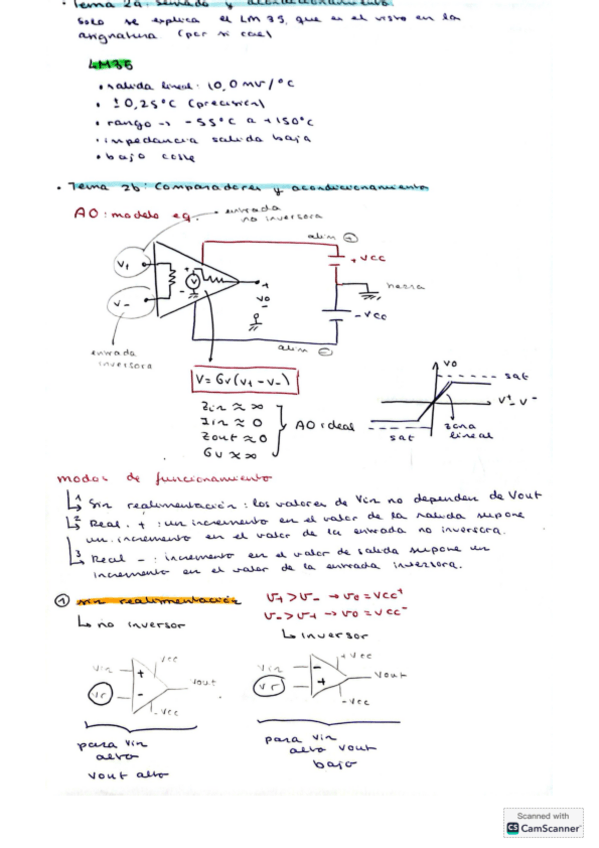 • Tema 2a: Sensado y acondicionamiento
Solo se explica el LM35, que es el visto en la
asignatura (por si cae)
LM35
• salida lineal: 10,0 mV/°C
• ± 0,25°C (precisión)
• rango → -55°C a +150°C
• impedancia salida baja
• bajo coste
• Tema 2b: Comparadores y acondicionamiento
AO: modelo eq.
entrada
no inversora
alim +
V+
+VCC
V-
masa
-VCC
Vo
entrada
inversora
alim -
V = Gv(V+ - V-)
Zin ≈ ∞
Iin ≈ 0
Zout ≈ 0
Gv ≈ ∞
AO ideal
Vo
sat
V+-V-
zona
lineal
sat
modos de funcionamiento
1 Sin realimentación: los valores de Vin no dependen de Vout
2 Real. +: un incremento en el valor de la salida supone
un incremento en el valor de la entrada no inversora.
3 Real -: incremento en el valor de salida supone un
incremento en el valor de la entrada inversora.
① sin realimentación
V+ > V- → Vo = Vcc+
V- > V+ → Vo = Vcc-
↳ no inversor
↳ inversor
Vin
Vcc
+
Vout
Vr
-
-Vcc
Vin
+Vcc
-
Vout
Vr
+
-Vcc
para Vin
alto
Vout alto
para Vin
alto Vout
bajo
Scanned with
CS CamScanner